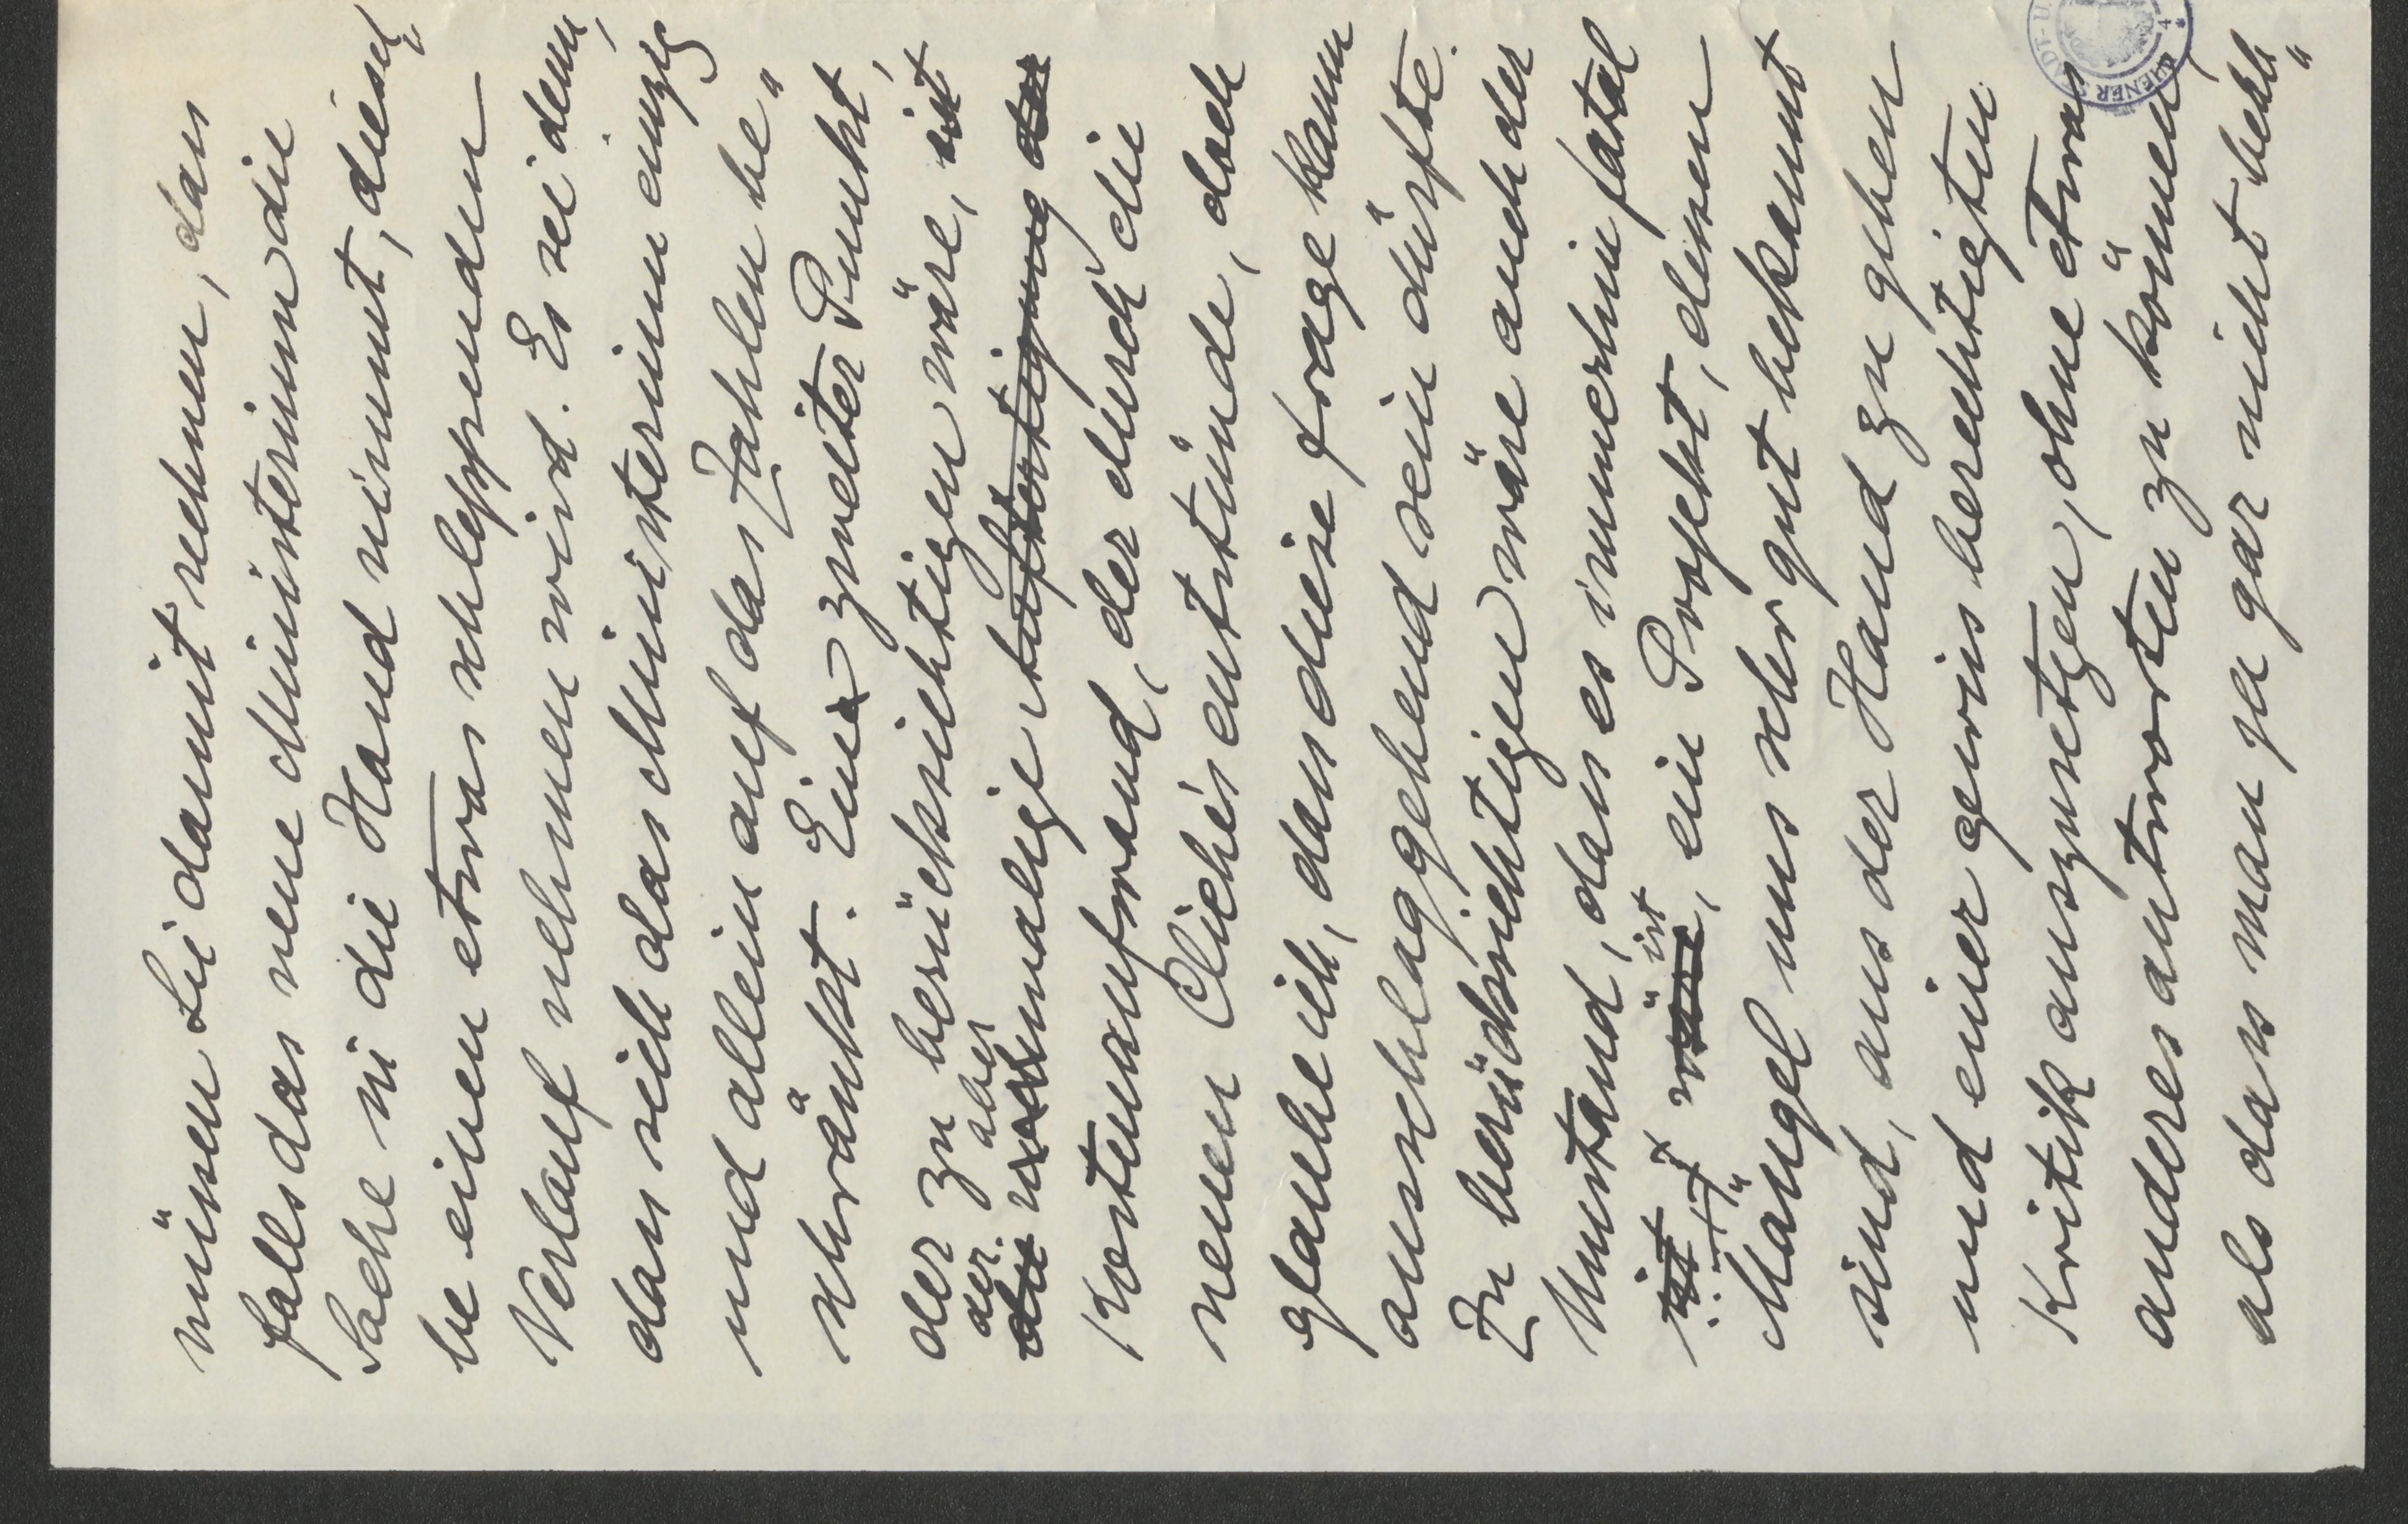 müssen Sie damit rechnen, dass
falls das neue Ministerium die
Sache in die Hand nimmt, diesel
be einen etwas schleppenden
Verlauf nehmen wird. Es sei denn,
dass sich das Ministerium einzig
und allein auf das Zahlen be„
schränkt. Ein zweiter Punkt,
der zu berücksichtigen wäre, ist
der aber
die nochmalige Anfertigung der
Kostenaufwand, der durch die
neuen Clichés entstünde, doch
glaube ich, dass diese Frage kaum
ausschlaggebend sein dürfte.
Zu berücksichtigen wäre auch der
Umstand, dass es immerhin fatal
ist
ist wäre, ein Projekt, dessen
Mängel uns sehr gut bekannt
sind, aus der Hand zu geben
und einer gewiss berechtigten
Kritik auszusetzen, ohne etwas
anderes antworten zu können,
als dass man ja gar nicht beab„
WIENER